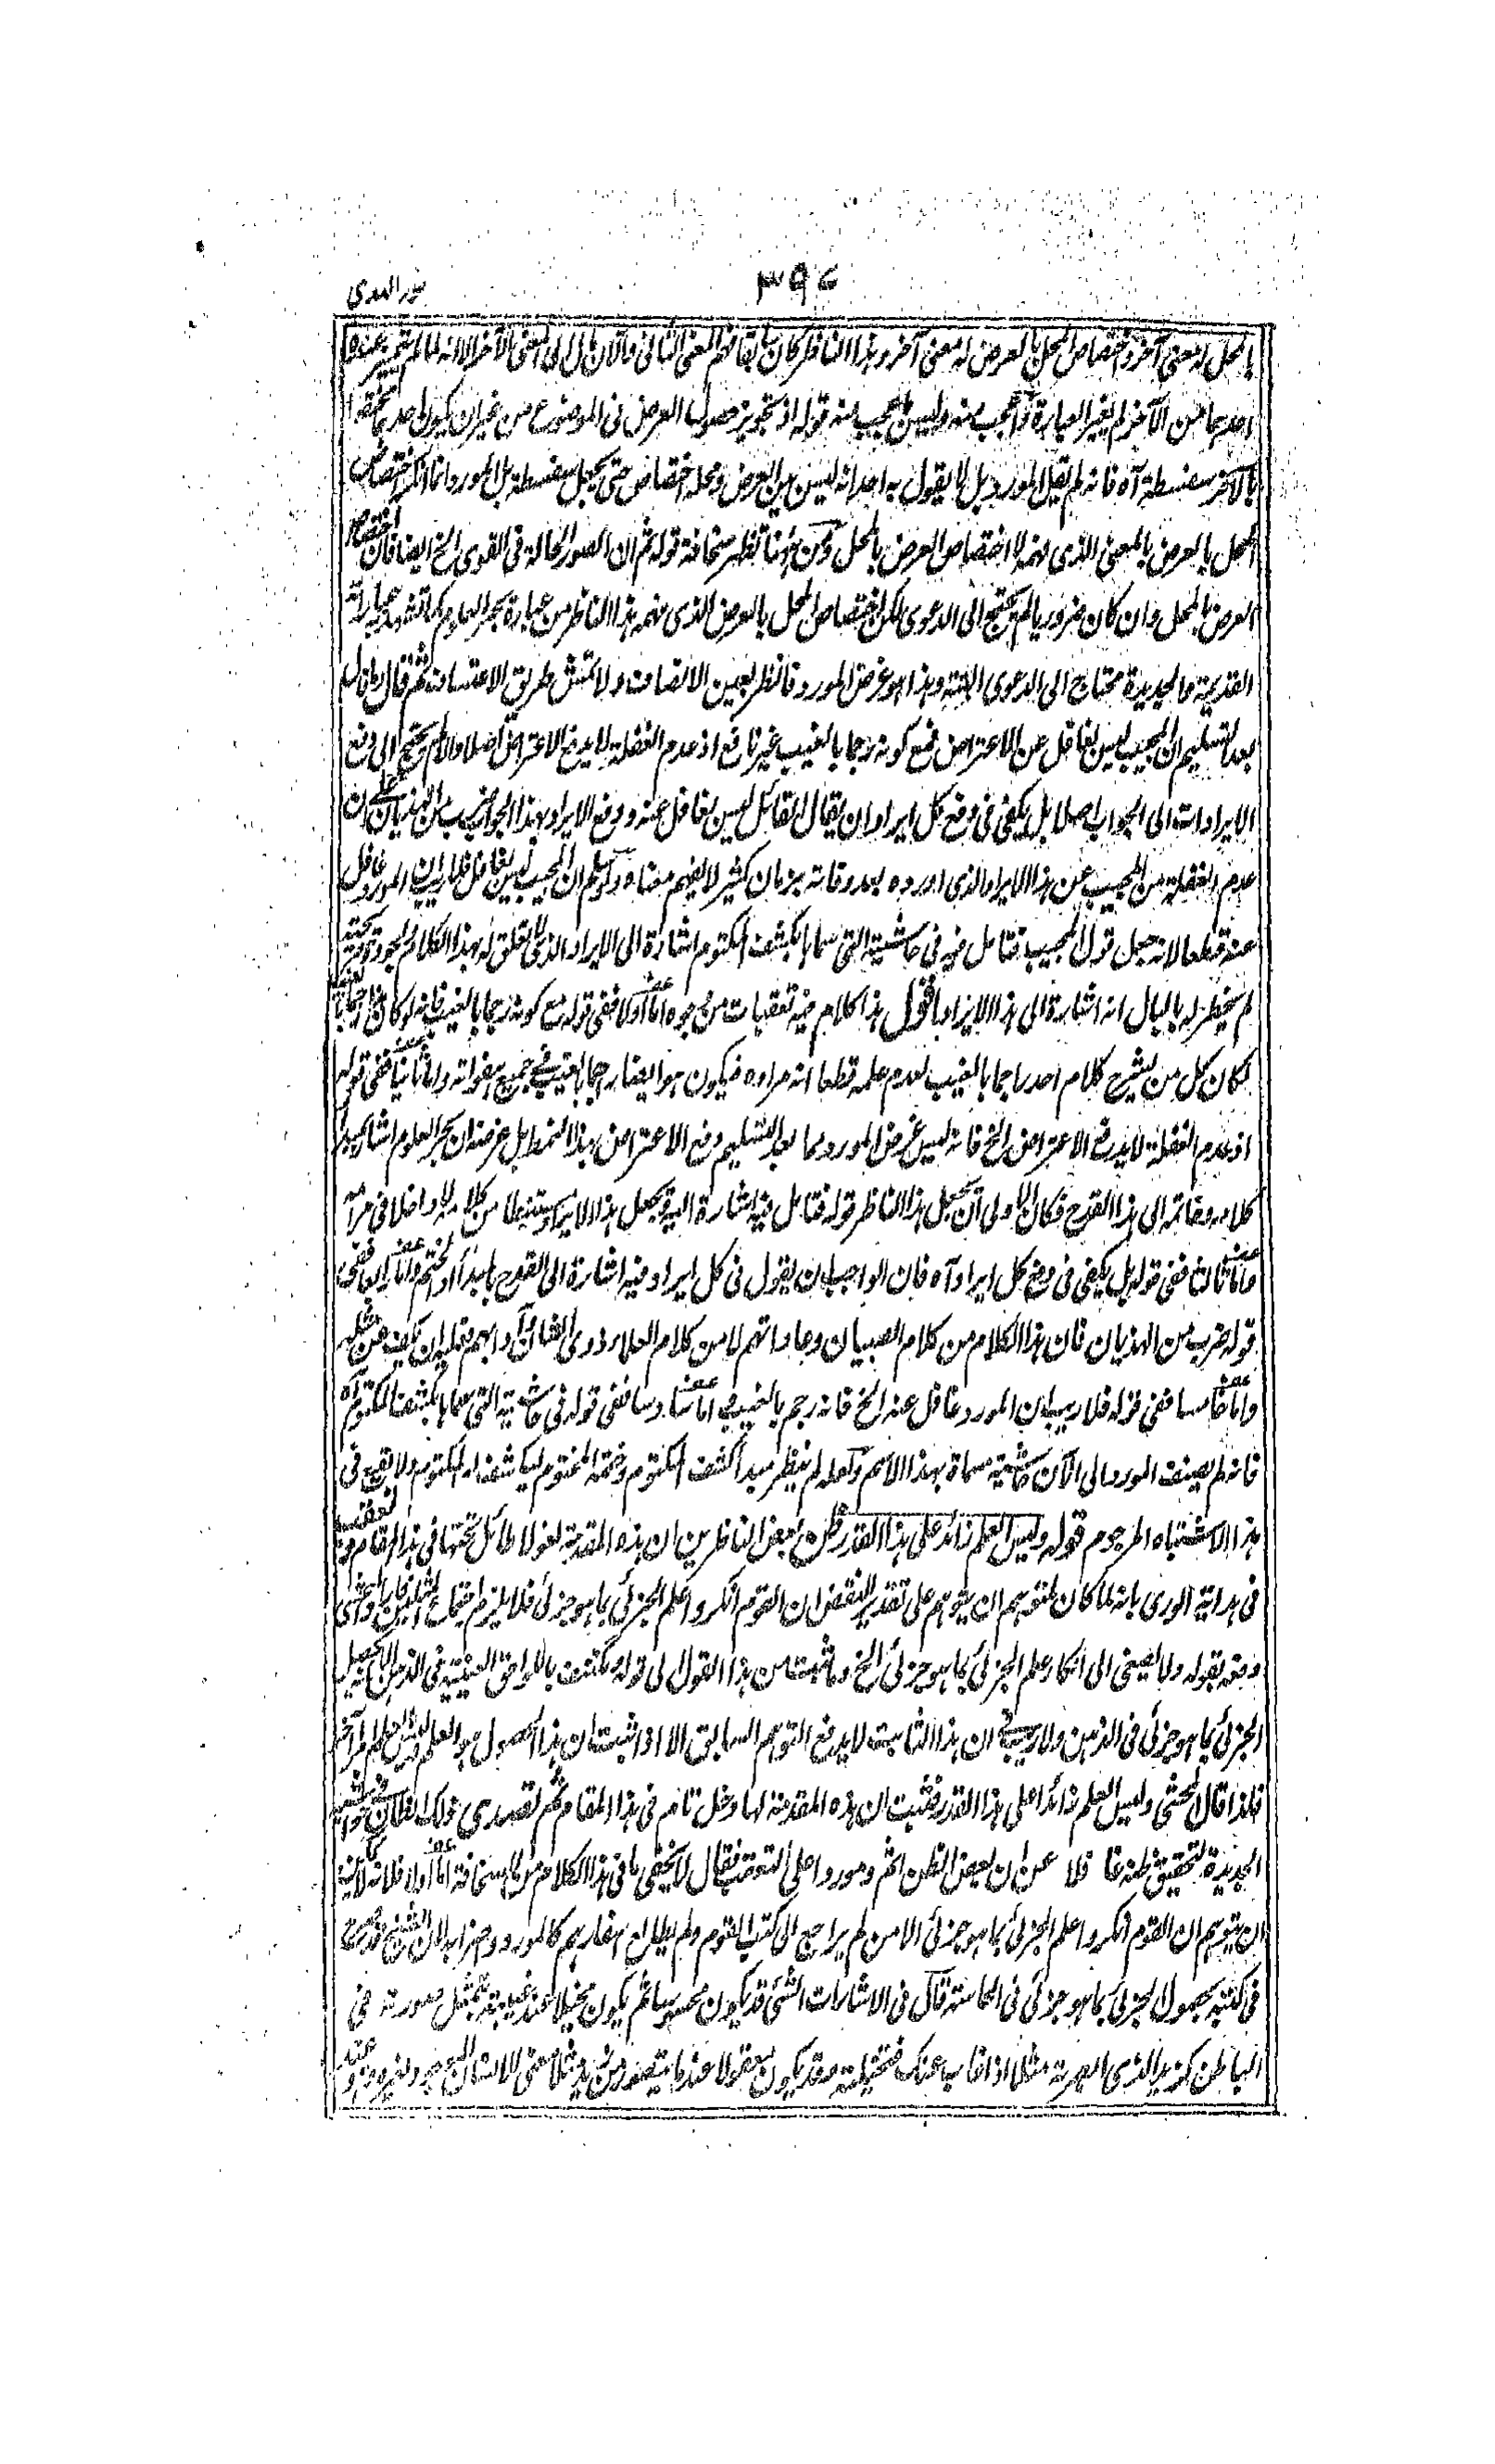 نور الهدى
۳۹۷
بالمحل له معنى آخر واختصاص المحل بالعرض له معنى آخر وهذا الناظر كان سابقا فهم المعنى الثاني والآن مال الى المعنى الآخر الا انه لما لم يتميز عنده
احدهما من الآخر لم يغير العبارة وأعجب منه وليس باعجب منه قوله اذ تجويز حصول العرض في الموضوع من غير ان يكون لاحدهما تخصص
بالآخر سفسطة آه فانه لم يقل المورد بل لا يقول به احد انه ليس بين العرض ومحله اختصاص حتى يجعل سفسطة بل المورد انما انكر اختصاص
المحل بالعرض بالمعنى الذي فهمه لا اختصاص العرض بالمحل ومن ههنا تظهر سخافة قوله ثم ان الصور الحالة في القوى الخ ايضا فان اختصاص
العرض بالمحل وان كان ضروريا لم يحتج الى الدعوى لكن اختصاص المحل بالعرض الذي فهمه هذا الناظر من عبارة بحر العلوم كما تشهد به عباراته
القديمة والجديدة محتاج الى الدعوى البتة وهذا هو غرض المورد فانظر بعين الانصاف ولا تمش طريق الاعتساف ثم قال ما قال
بعد تسليم ان المجيب ليس بغافل عن الاعتراض فمع كونه رجما بالغيب غير نافع اذ عدم الغفلة لا يدفع الاعتراض اصلا والا لم يحتج الى دفع
الايرادات الى الجواب اصلا بل يكفي في دفع كل ايراد ان يقال القائل ليس بغافل عنه ودفع الايراد بهذا الجواب ضرب من الهذيان على ان
عدم الغفلة من المجيب عن هذا الايراد الذي اورده بعد وفاته بزمان كثير لا يفهم معناه ولو سلم ان المجيب ليس بغافل فلا ريب ان المورد غافل
عنه قطعا لانه جعل قول المجيب فتامل فيه في حاشيته التي سماها بكشف المكتوم اشارة الى الايراد الذي لا تعلق له بهذا الكلام
لم يخطر له بالبال انه اشارة الى هذا الايراد اقول هذا كلام فيه تعقبات من وجوه اما اولا ففي قوله مع كونه رجما بالغيب فانه لو كان هذا رجما بالغيب
لكان كل من يشرح كلام احد راجما بالغيب لعدم علمه قطعا انه مراده فيكون هو ايضا راجما بالغيب في جميع هفواته واما ثانيا ففي قوله
اذ عدم الغفلة لا يدفع الاعتراض الخ فانه ليس غرض المورد مما بعد التسليم دفع الاعتراض بهذا النمط بل غرضه ان بحر العلوم اشار بهذا
كلامه وخاتمه الى هذا القدح فكان الاولى ان يجعل هذا الناظر قوله فتامل فيه اشارة اليه ويجعل هذا الايراد مستنبطا من كلامه لا داخلا في مرامه
واما ثالثا ففي قوله بل يكفي في دفع كل ايراد آه فان الواجب ان يقول في كل ايراد فيه اشارة الى القدح بالمبدأ او المختم واما رابعا ففي
قوله ضرب من الهذيان فان هذا الكلام من كلام الصبيان وعاداتهم لا من كلام العلماء ذوي الشان وآدابهم فعليه ان يكف عن مثله
واما خامسا ففي قوله فلا ريب ان المورد غافل عنه الخ فانه رجم بالغيب واما سادسا ففي قوله في حاشيته التي سماها بكشف المكتوم آه
فانه لم يصنف المورد الى الآن حاشية مسماة بهذا الاسم ولعله لم ينظر مبدأ كشف المكتوم وختمه المختوم ليكاشف له المكتوم ولا يقع في
هذا الاشتباه المرجوم قوله وليس العلم زائدا على هذا القدر ظن بعض الناظرين ان هذه المقدمة لغو لا طائل تحتها في هذا المقام
في هداية الورى بانه لما كان لمتوهم ان يتوهم على تقدير النقض ان القوم انكروا علم الجزئي بما هو جزئي فلا يلزم اجتماع المثلين
دفعه بقوله ولا يصغى الى انكار علم الجزئي بما هو جزئي الخ وما ثبت من هذا القول الى قوله ويكتنف باللواحق العينية في الذهن الا تحصيل
الجزئي بما هو جزئي في الذهن ولا ريب في ان هذا الثابت لا يدفع التوهم السابق الا اذا ثبت ان هذا الحصول هو العلم
فلذا قال المحشي وليس العلم زائدا على هذا القدر فثبت ان هذه المقدمة لها دخل تام في هذا المقام ثم تصدى ذلك الظان في حواشيه
الجديدة لتحقيق ظنه غافلا عن ان بعض الظن اثم وموردا على التعقب فقال لا يخفى ما في هذا الكلام من السخافة اما اولا فلانه لا يمكن
ان يتوهم ان القوم انكروا علم الجزئي بما هو جزئي الا من لم يراجع الى كتب القوم ولم يطالع اسفارهم كالمورد وحزابه لان الشيخ قد صرح
في كتبه بحصول الجزئي بما هو جزئي في الحاسة قال في الاشارات الشئ قد يكون محسوسا ثم يكون متخيلا عند غيبته بتمثل صورته في
الباطن كزيد الذي ابصرته مثلا اذا غاب عنك فتخيلته وقد يكون معقولا عند ما يتصور من زيد مثلا معنى الانسان الموجود لغيره